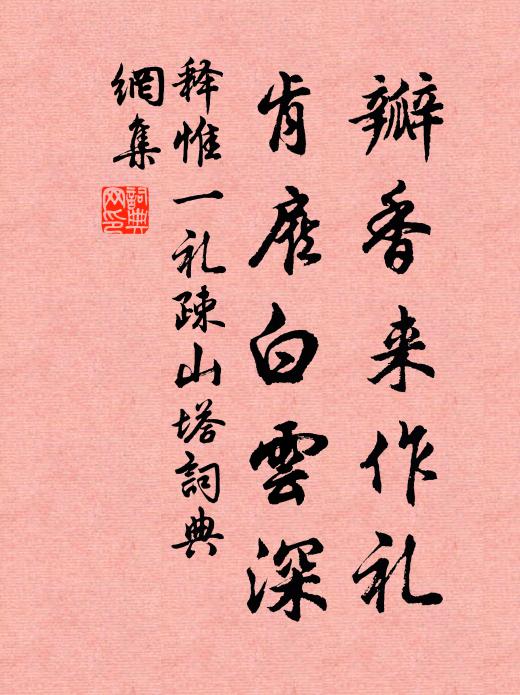 瓣香来作礼
肯白雲深
释惟一礼疎山塔詞典
網集
詞典
网印